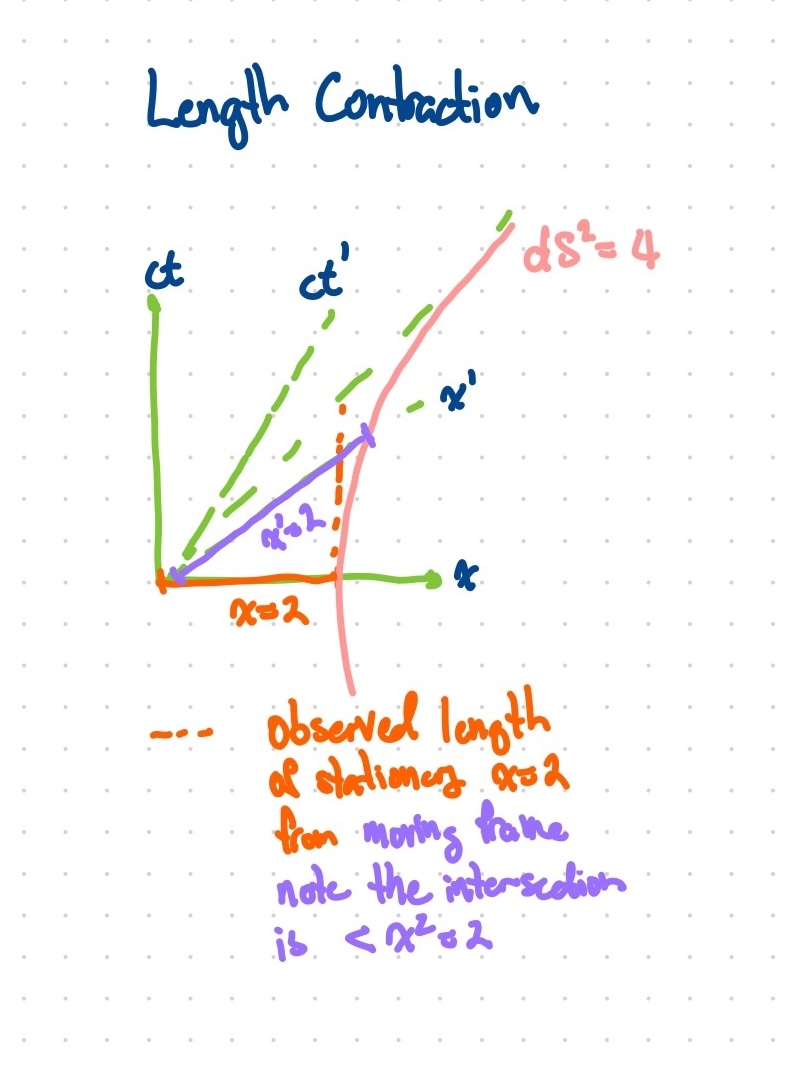 Length Contraction
ct
ct'
dS² = 4
x'
x'=2
x
x=2
observed length
of stationary x=2
from moving frame
note the intersection
is < x²=2